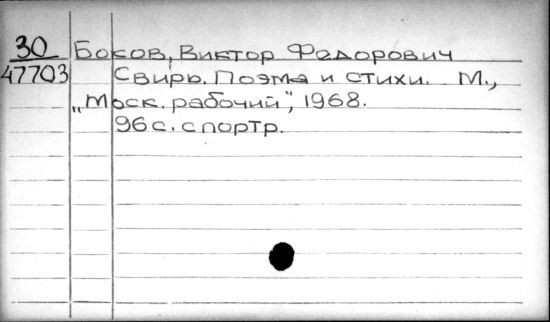 30 Боков, Виктор Федорович
47703 Свирь. Поэма и стихи. М.,
„Моск. рабочий", 1968.
96 с. с портр.